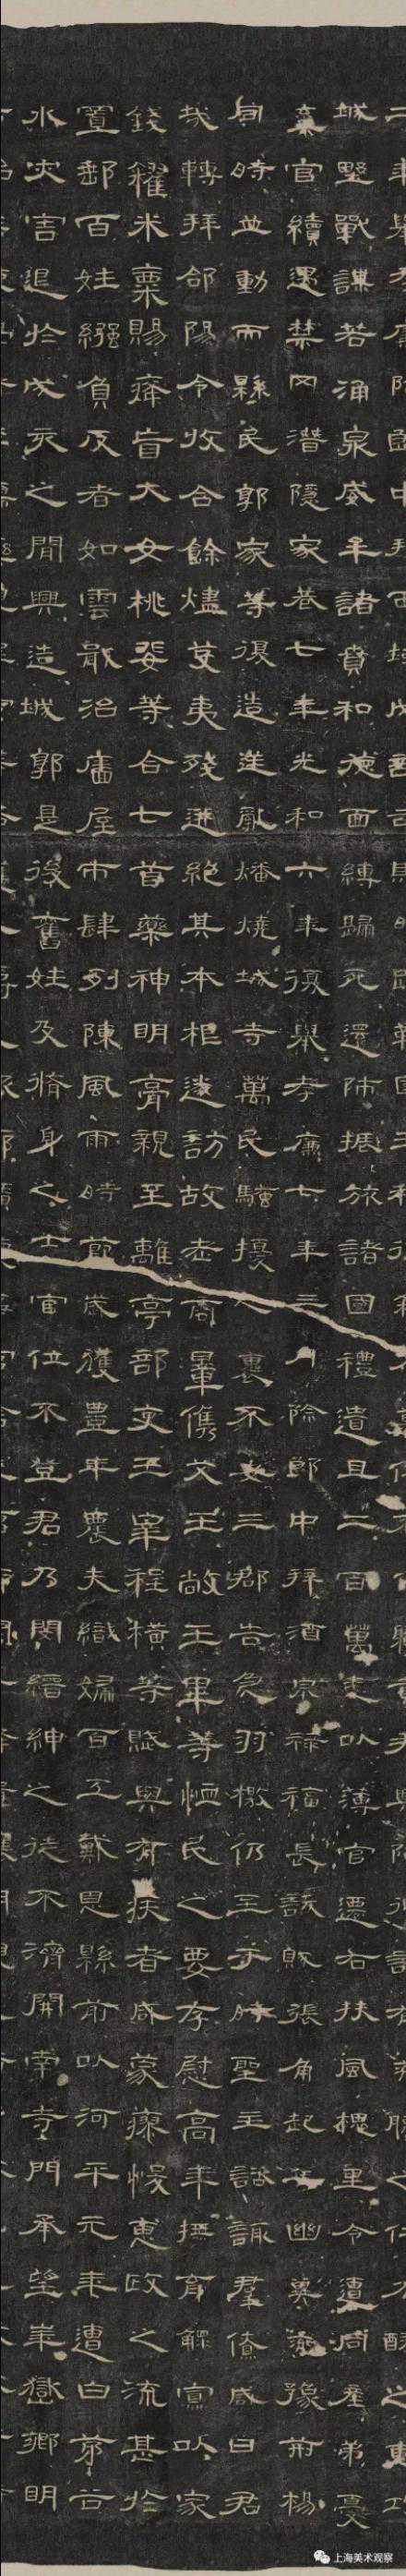 城野戰謀若涌泉威牟諸賁和德面縛歸死還師振旅諸國禮遺且二百萬悉以薄官遷右扶風槐里令遭同產弟憂
棄官續遇禁罔潛隱家巷七年光和六年復舉孝廉七年三月除郎中拜酒泉祿福長訞賊張角起兵幽冀兗豫荊楊
同時並動而縣民郭家等復造逆亂燔燒城寺萬民騷擾人褱不安三郡告急羽檄仍至于時聖主諮諏羣僚咸曰君
哉轉拜郃陽令收合餘燼芟夷殘迸絕其本根遂訪故老商量儁艾王敞王畢等恤民之要存慰高年撫育鰥寡以家
錢糴米粟賜癃盲大女桃婓等合七首藥神明膏親至離亭部吏王宰程橫等賦與有疾者咸蒙瘳悛惠政之流甚於
置郵百姓繦負反者如雲戢治廧屋市肆列陳風雨時節歲獲豐年農夫織婦百工戴恩縣前以河平元年遭白茅谷
水灾害退於戊亥之間興造城郭是後舊姓及脩身之士官位不登君乃閔縉紳之徒不濟開南寺門承望華嶽鄉明
上海美术观察